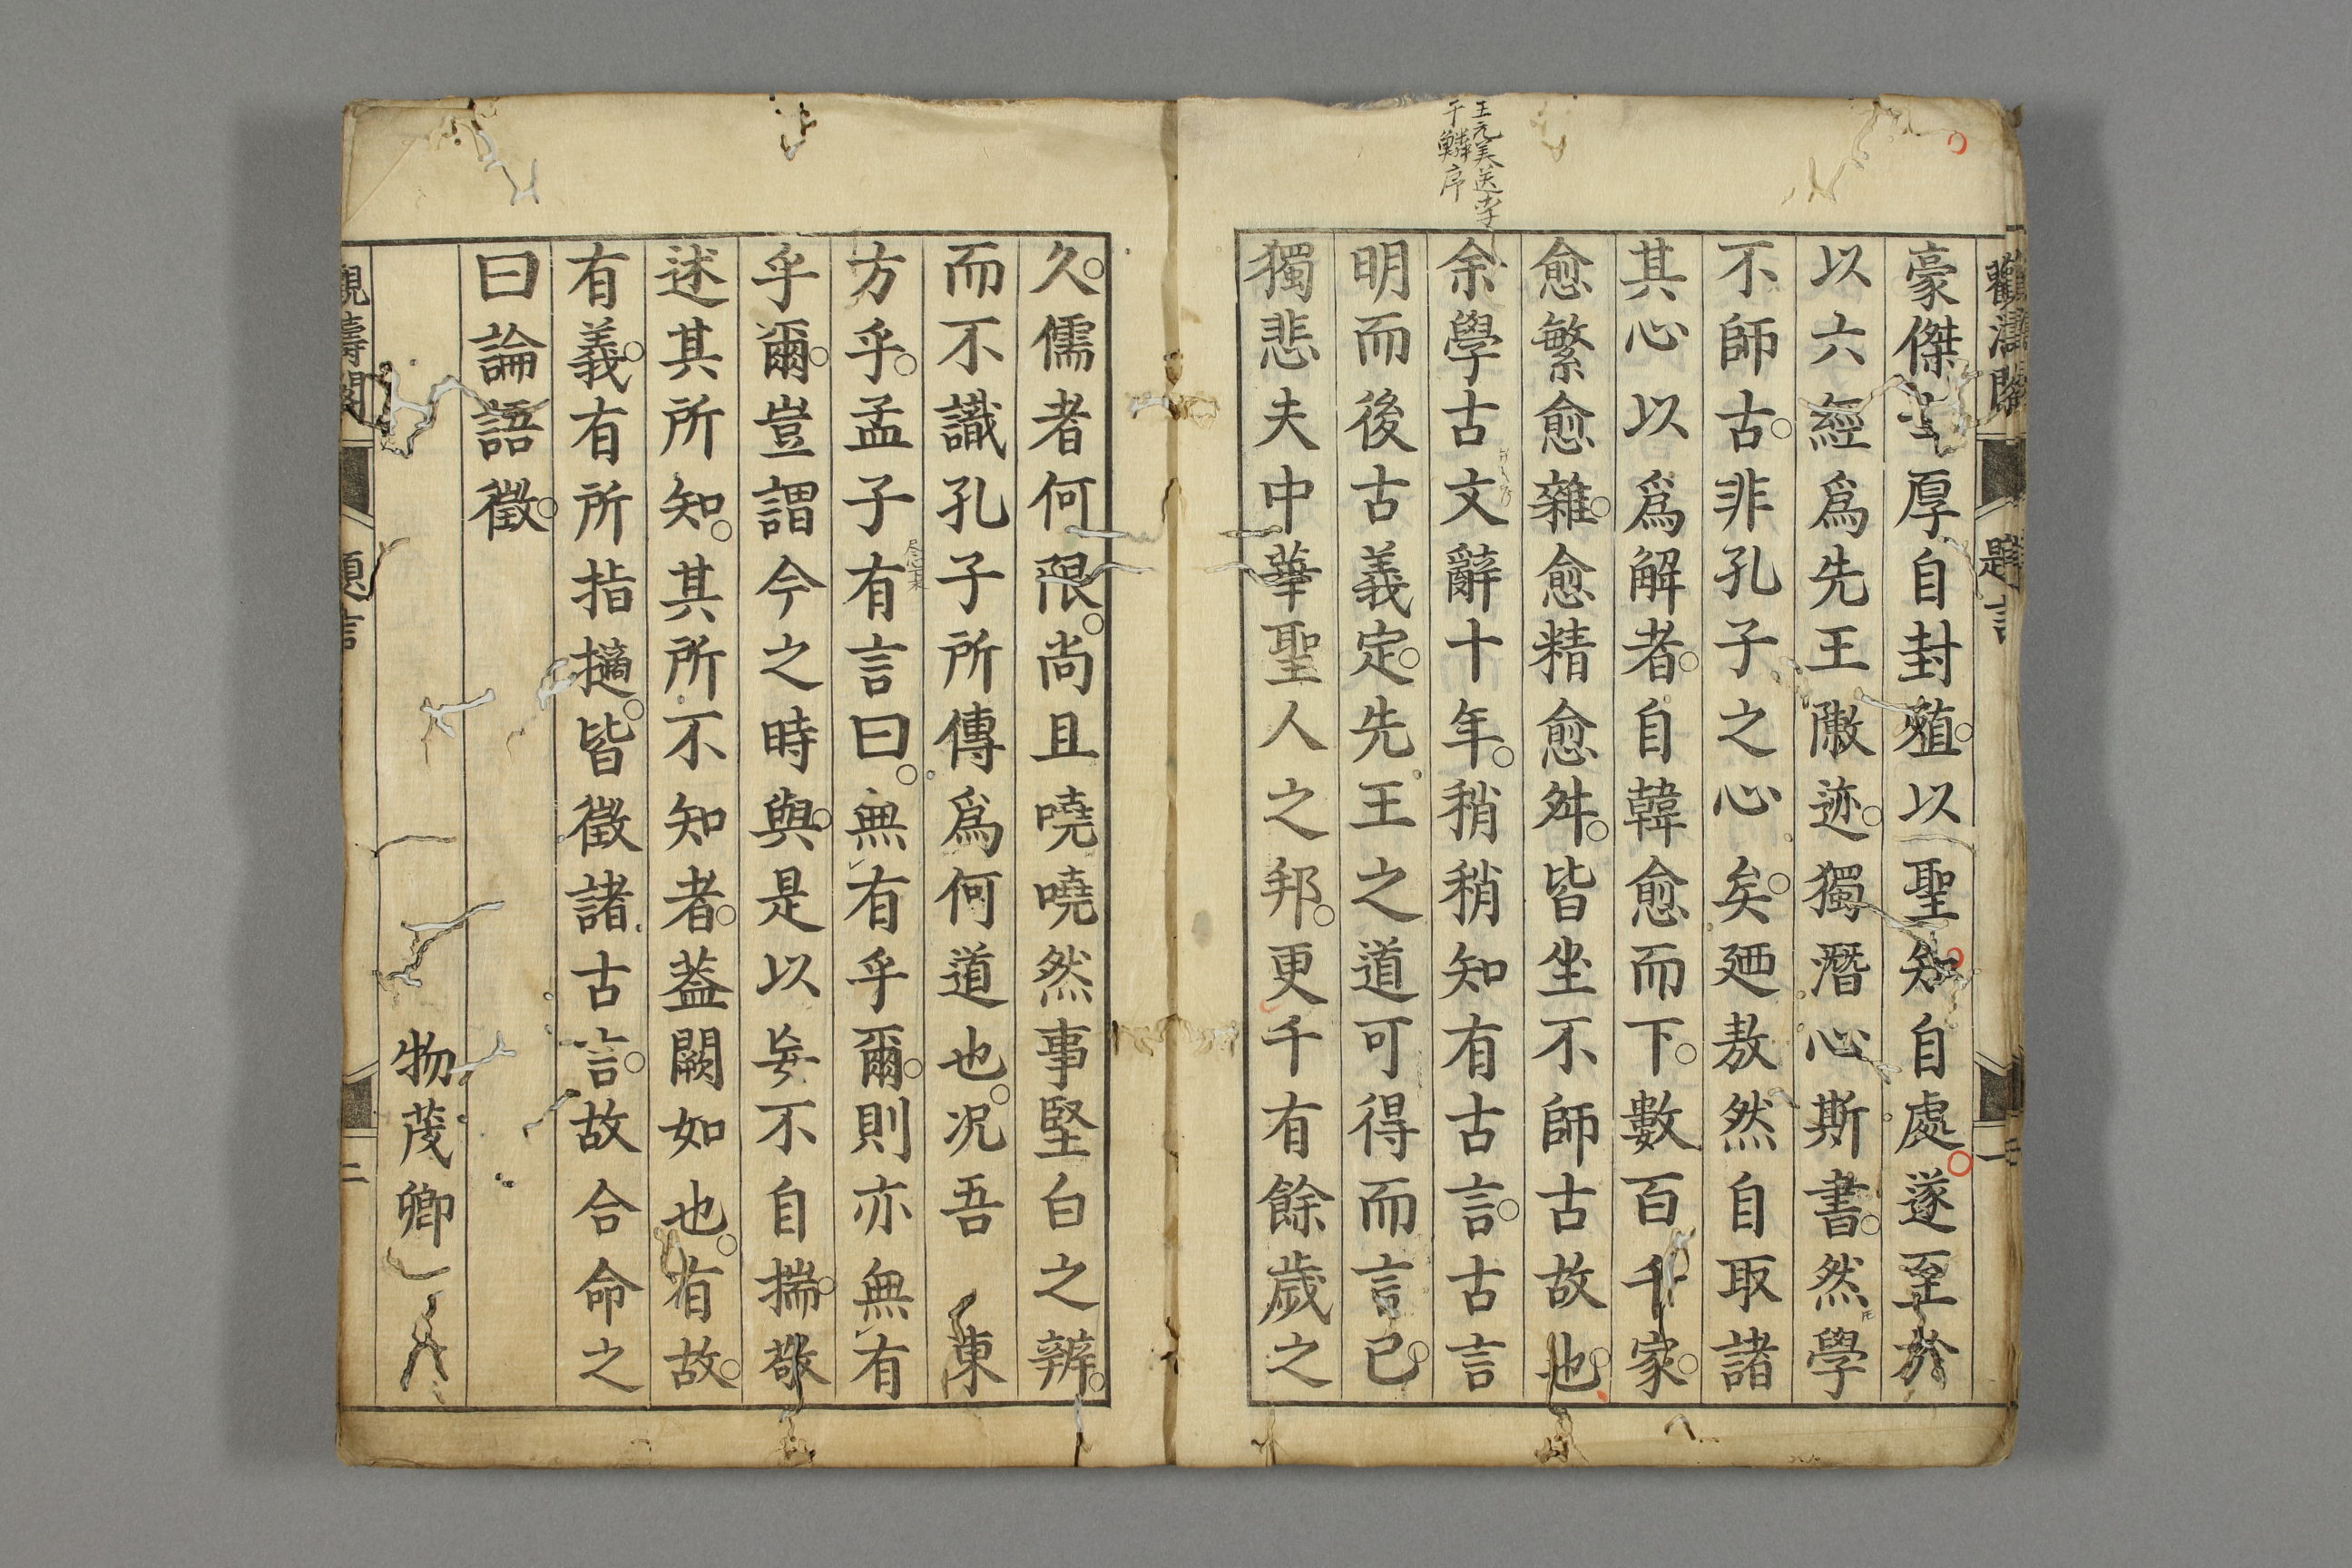 王元美送李
于鱗序
豪傑厚自封殖以聖知自處遂至於
以六經爲先王敶迹獨潛心斯書然學
不師古非孔子之心矣廼敖然自取諸
其心以爲解者自韓愈而下數百千家
愈繁愈雜愈精愈舛皆坐不師古故也
余學古文辭十年稍稍知有古言古言
明而後古義定先王之道可得而言已
獨悲夫中華聖人之邦更千有餘歲之
久儒者何限尚且嘵嘵然事堅白之辨
而不識孔子所傳爲何道也况吾東
方乎孟子有言曰無有乎爾則亦無有
乎爾豈謂今之時與是以妄不自揣敬
述其所知其所不知者葢闕如也有故
有義有所指擿皆徵諸古言故合命之
曰論語徵
物茂卿
觀濤閣 題言 二